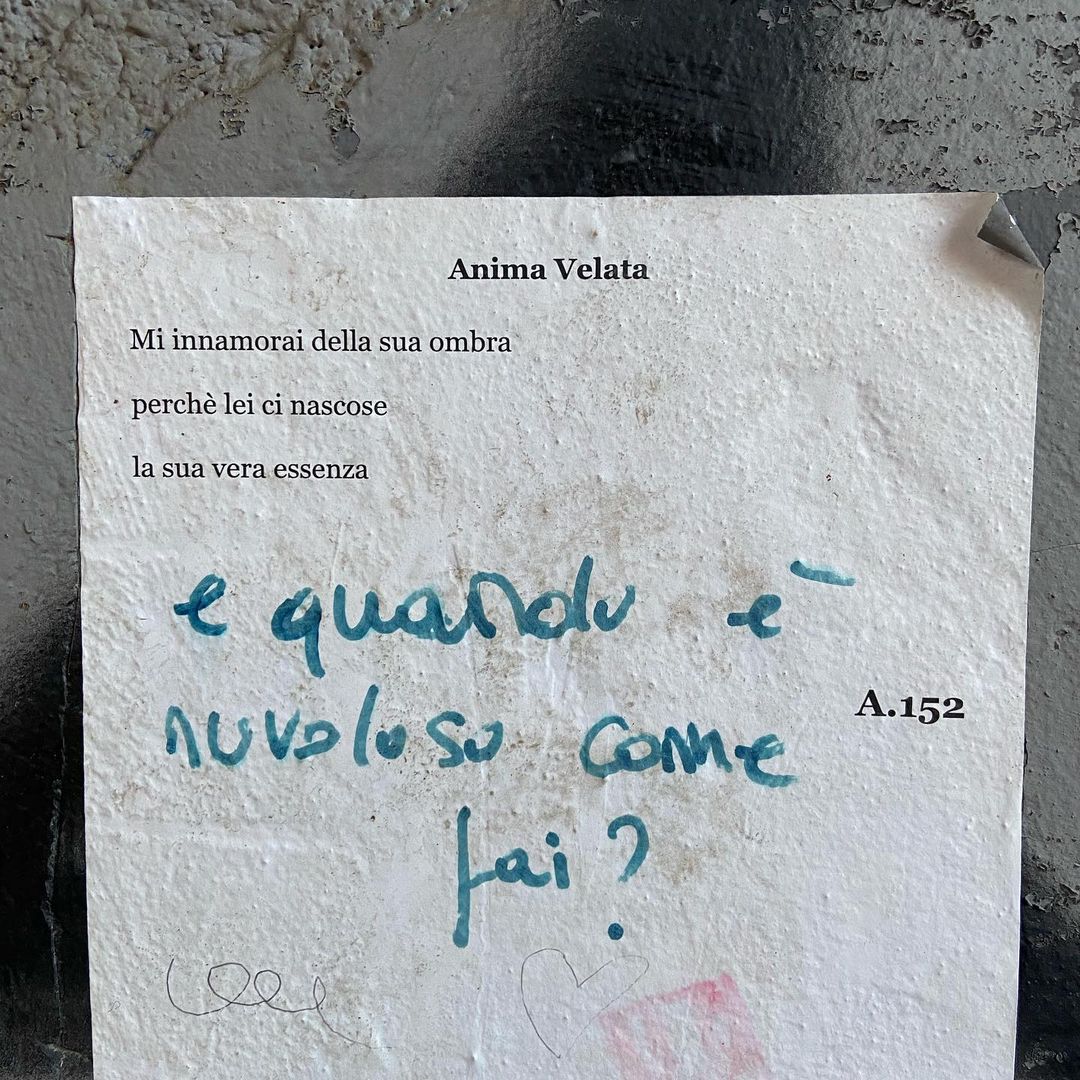 Anima Velata
Mi innamorai della sua ombra
perchè lei ci nascose
la sua vera essenza
e quando è
A.152
nuvoloso come
fai?